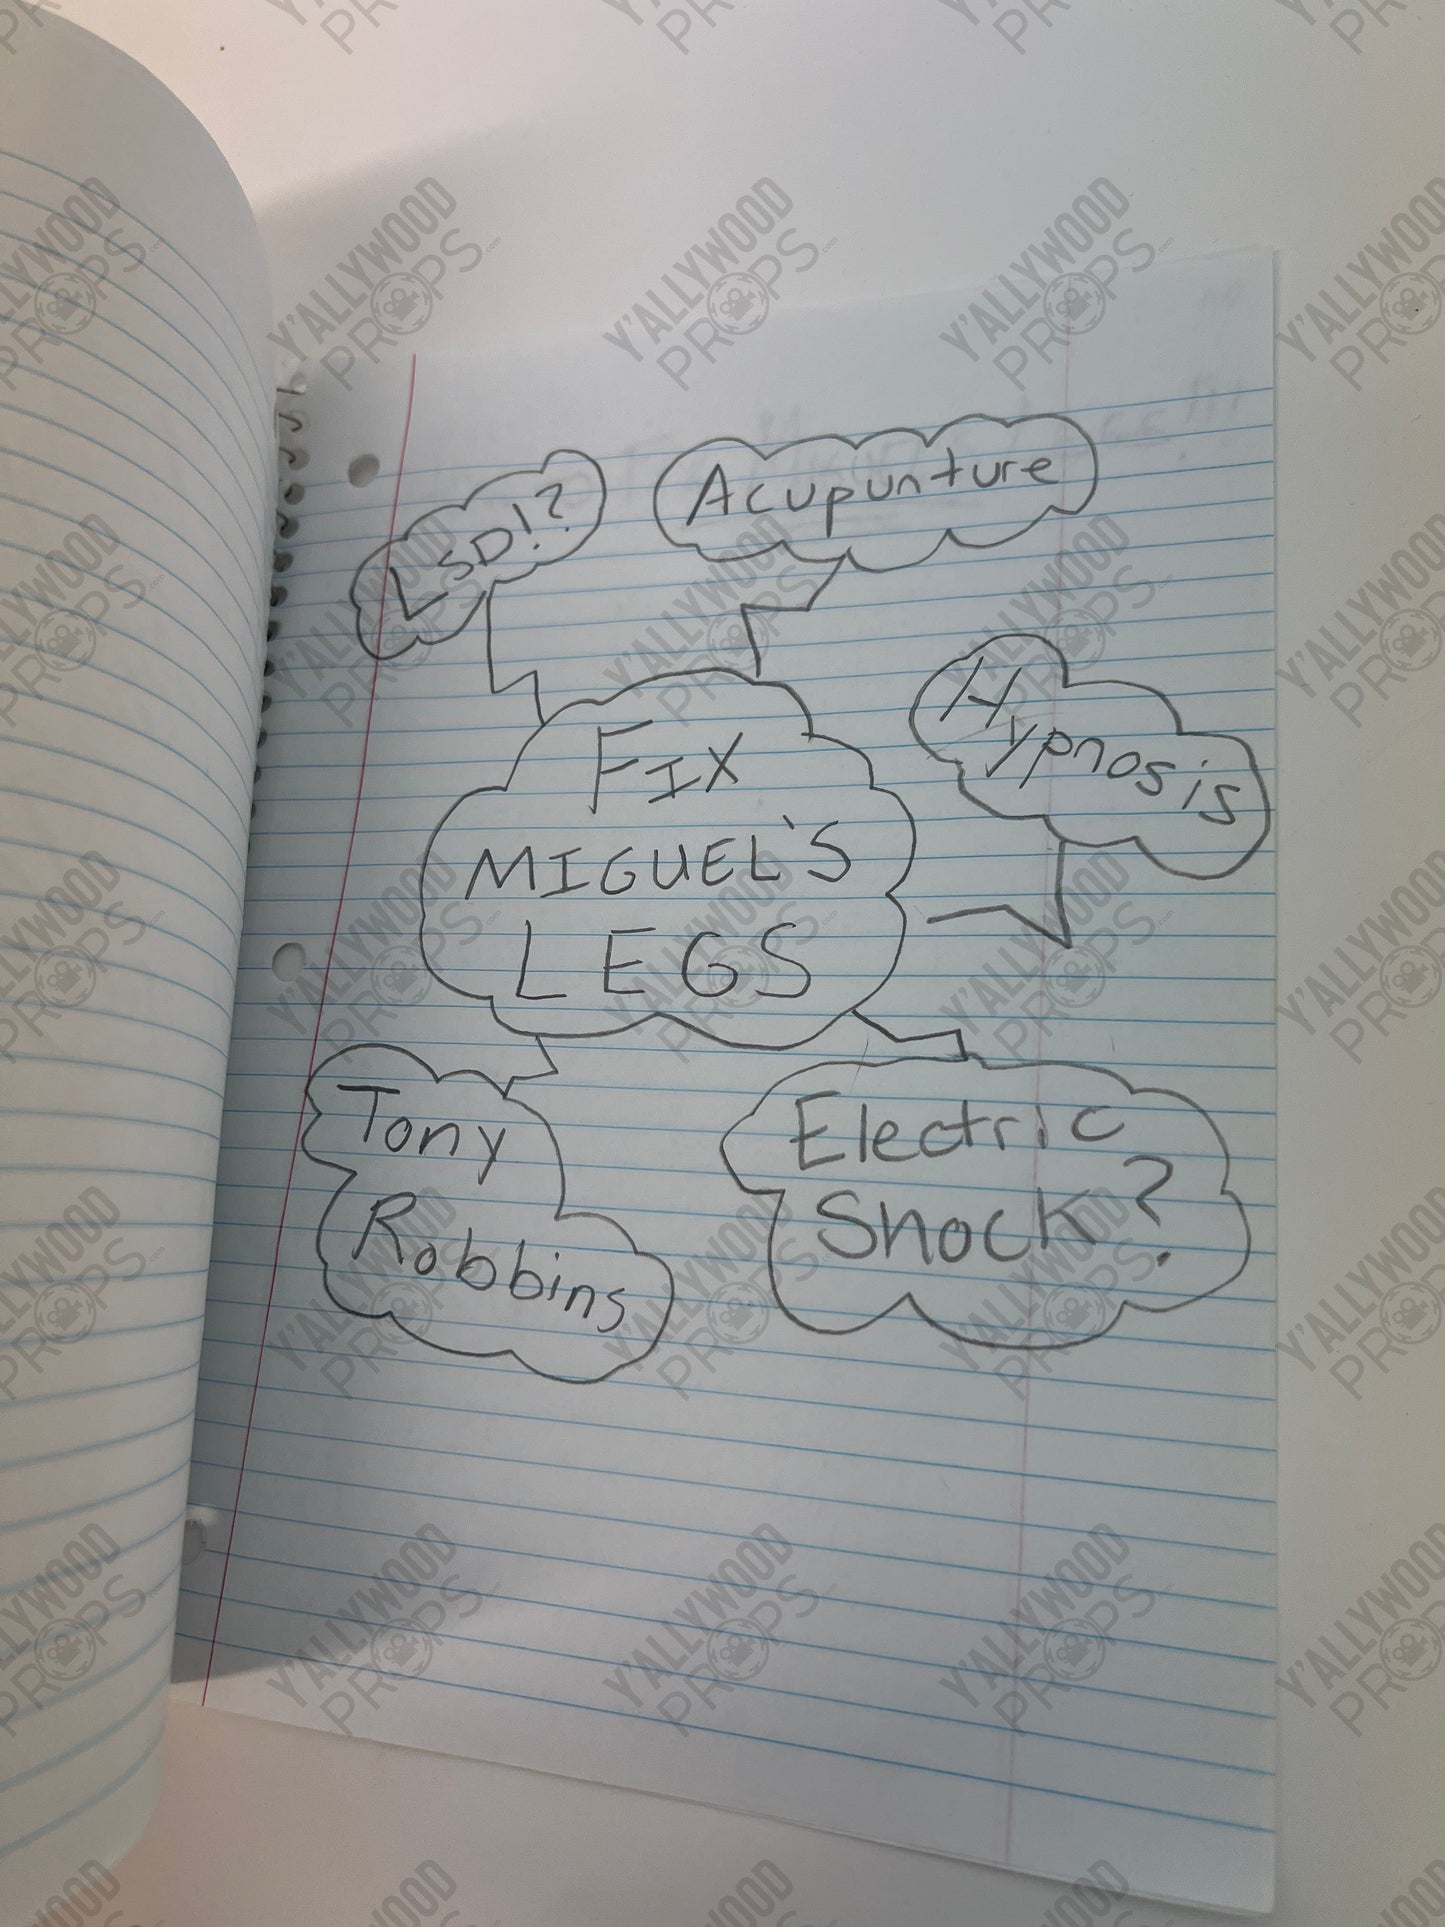 LSD!?
Acupunture
Hypnosis
FIX
MIGUEL'S
LEGS
Tony
Robbins
Electric
Shock?
Y'ALLYWOOD
PROPS
.com